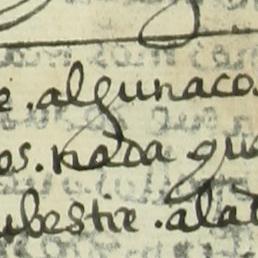 e .algunaco.
os. nada que
ubestir .alad